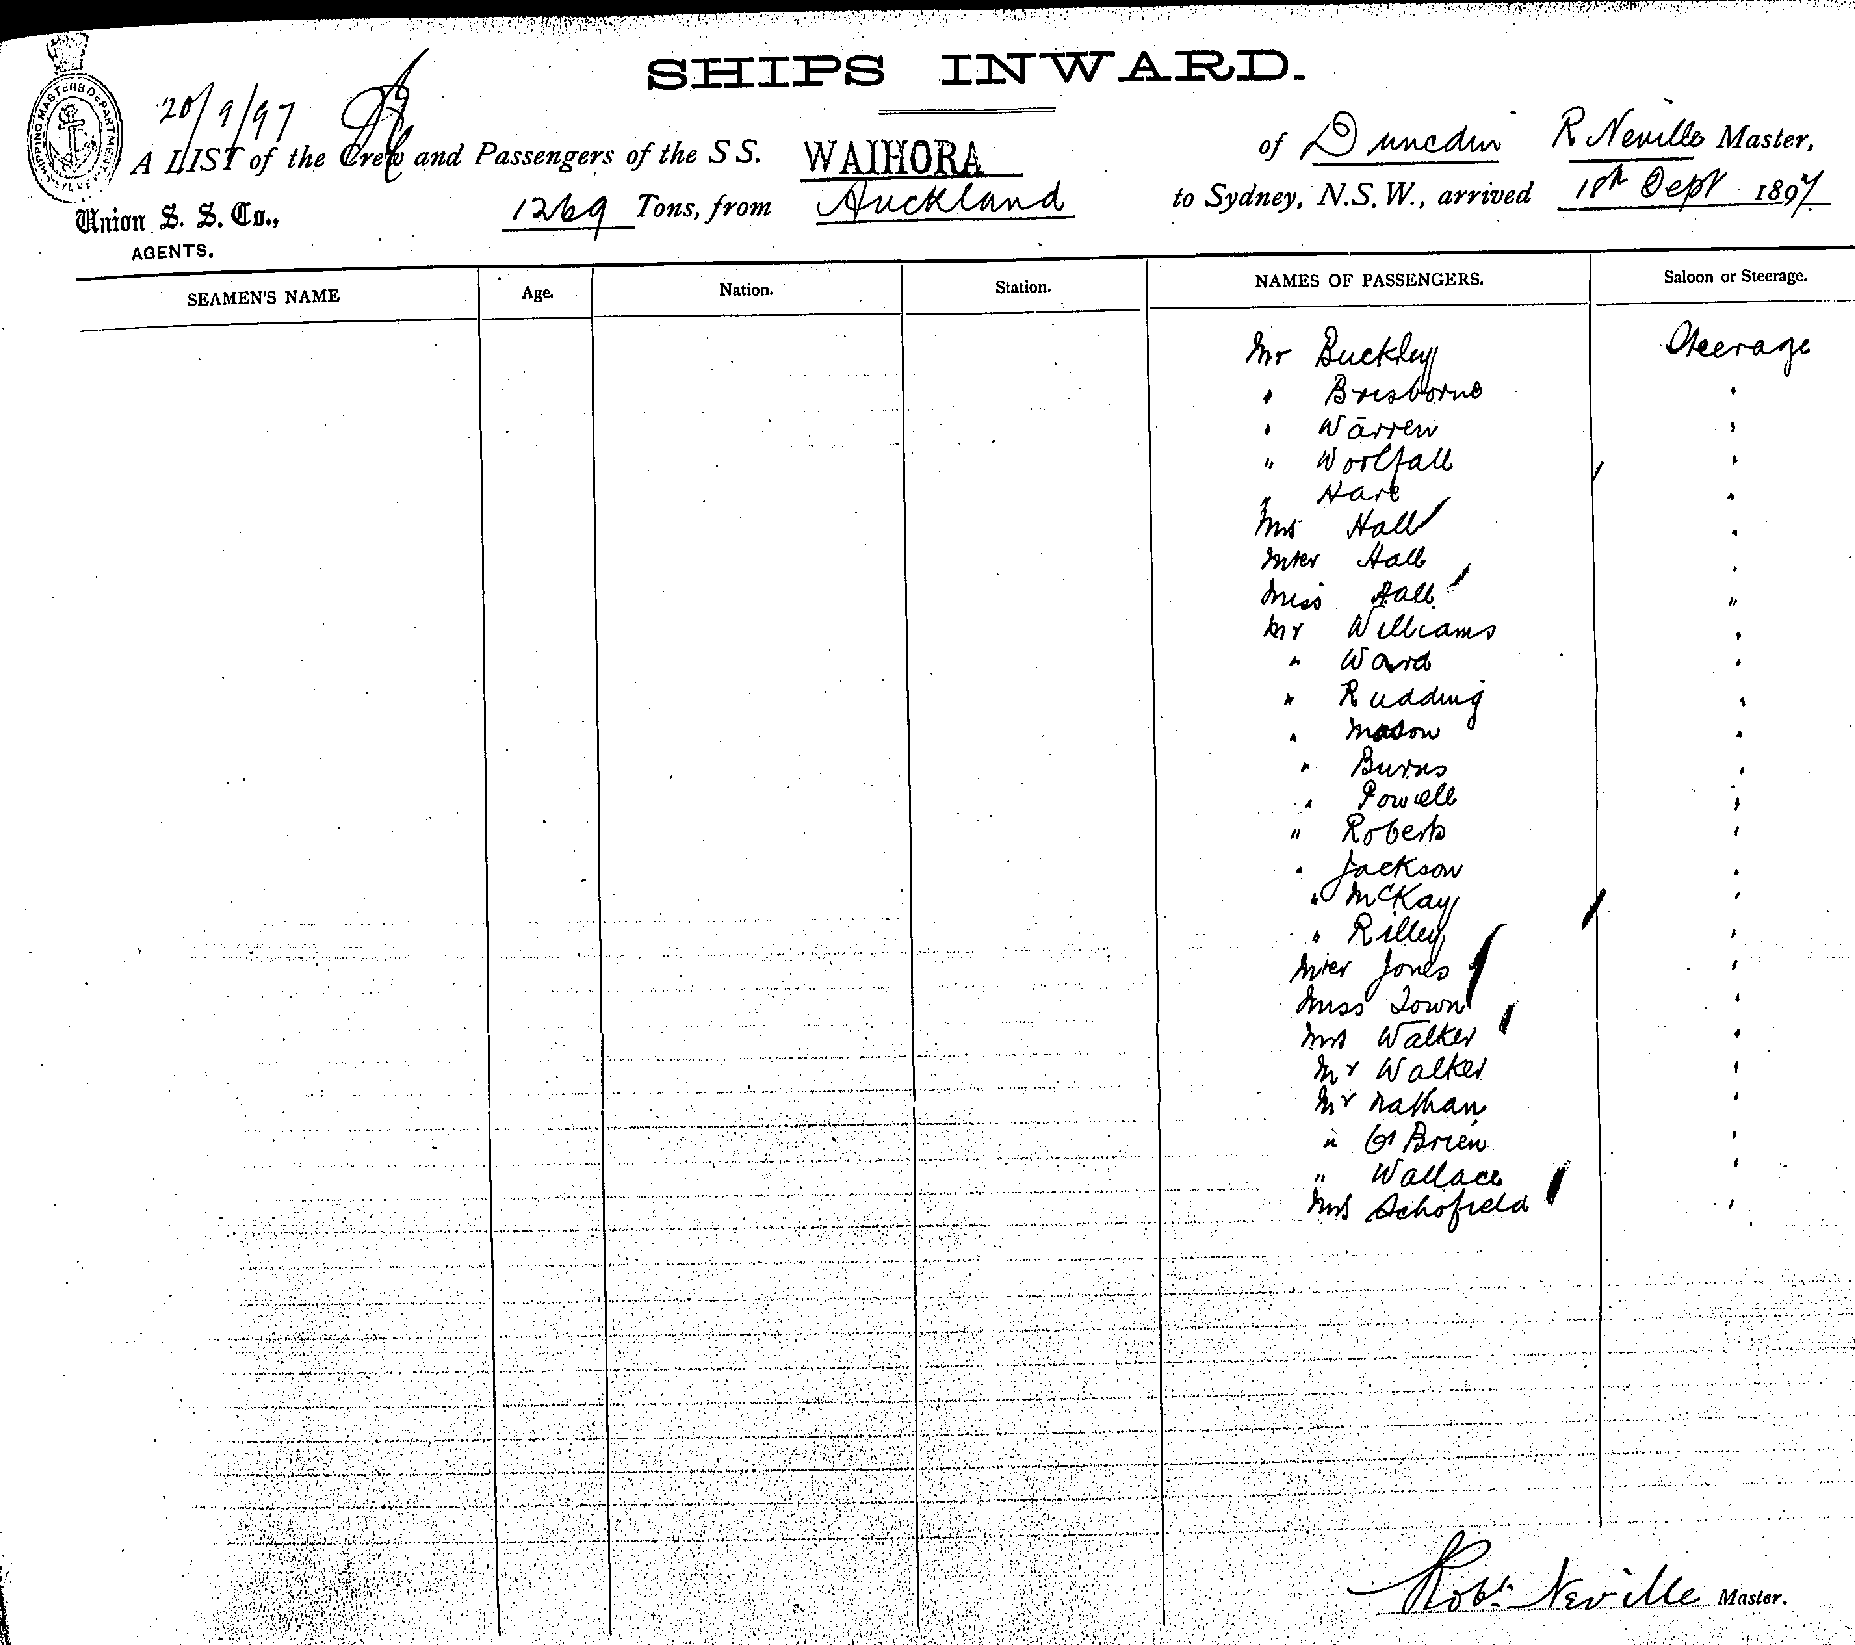 SHIPS INWARD.
20/9/97
A LIST of the Crew and Passengers of the S S. WAIHORA of Dunedin R Neville Master,
Union S. S. Co., 1269 Tons, from Auckland to Sydney, N.S.W., arrived 18th Sept 1897
AGENTS.
SEAMEN'S NAME Age. Nation. Station. NAMES OF PASSENGERS. Saloon or Steerage.
Mr Buckley Steerage
" Brisborne "
" Warren "
" Woolfall "
" Hare "
Mrs Hall "
Mster Hall "
Miss Hall "
Mr Williams "
" Ward "
" Rudding "
" Mason "
" Burns "
" Powell "
" Roberts "
" Jackson "
" McKay "
" Rilley "
Mster Jones "
Miss Town "
Mrs Walker "
Mr Walker "
Mr Nathan "
" O'Brien "
" Wallace "
Mrs Schofield "
Robt Neville Master.